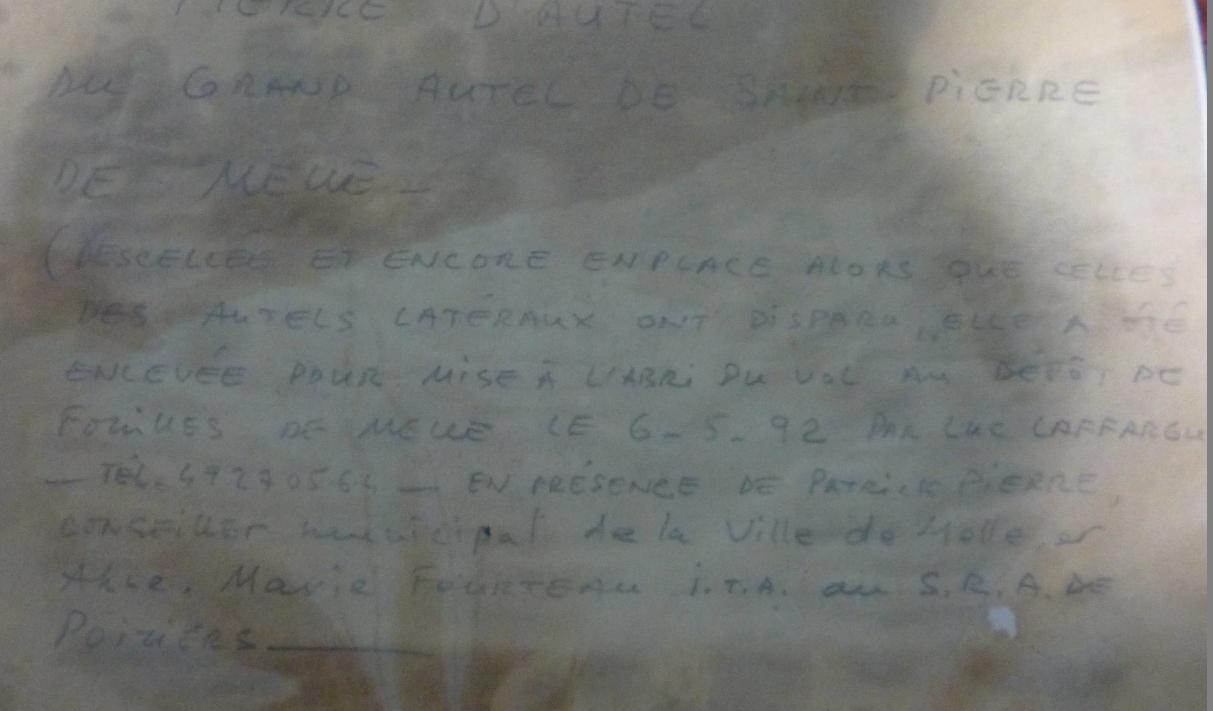 PIERRE D'AUTEL
DU GRAND AUTEL DE SAINT-PIERRE
DE MELLE -
(DESCELLÉE ET ENCORE EN PLACE ALORS QUE CELLES
DES AUTELS LATÉRAUX ONT DISPARU, ELLE A ÉTÉ
ENLEVÉE POUR MISE À L'ABRI DU VOL AU DÉPÔT DE
FOUILLES DE MELLE LE 6-5-92 PAR LUC LAFFARGU
- TÉL. 49270564 - EN PRÉSENCE DE PATRICK PIERRE,
CONSEILLER municipal de la Ville de Melle, et
Marie FOURTEAU I.T.A. au S.R.A. DE
POITIERS